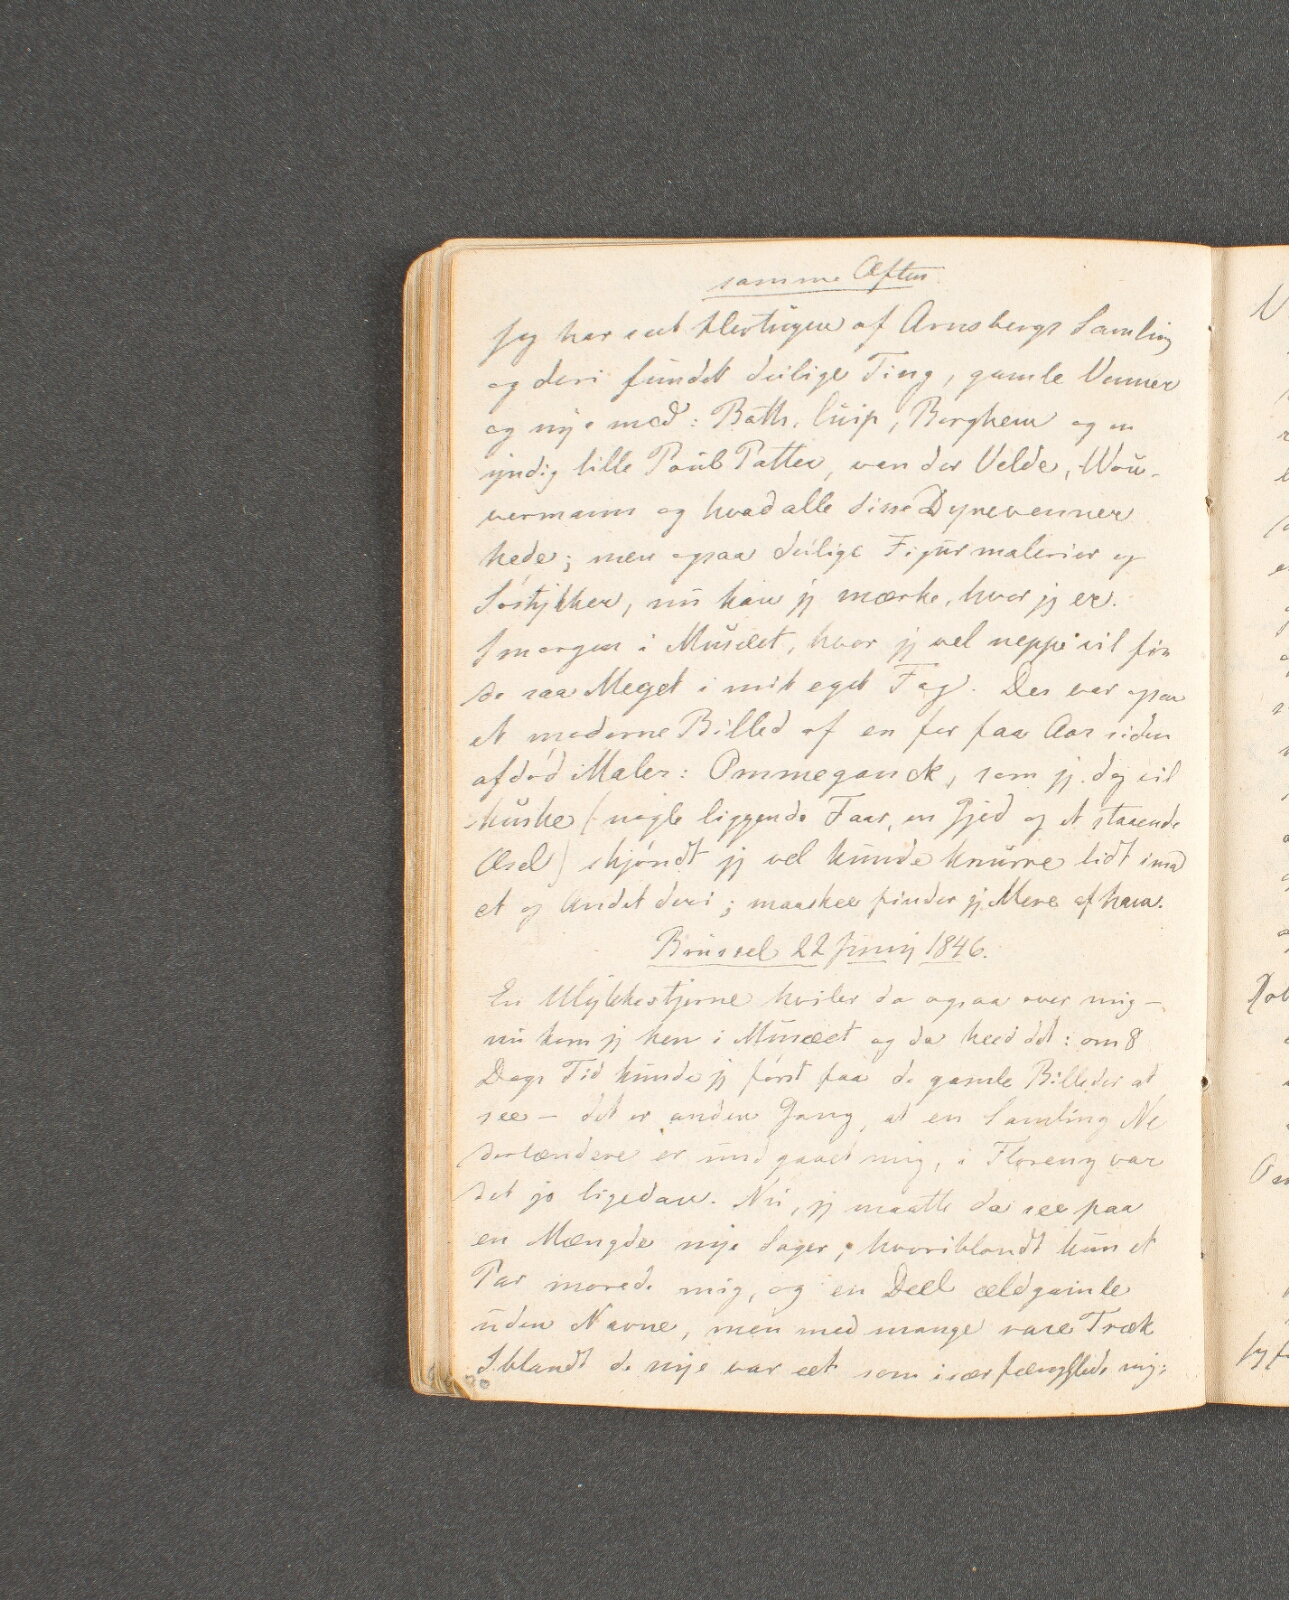 samme Aften.
Jeg har seet Hertugen af Arnsbergs Samling
og deri fundet deilige Ting, gamle Venner
og nye med: Both, Cuip, Berghem og en
yndig lille Paul Potter, van der Velde, Wou-
vermann og hvad alle disse Dyrevenner
hede; men ogsaa deilige Figurmalerier og
Søstykker, nu kan jeg mærke, hvor jeg er.
Imorgen i Musæet, hvor jeg vel neppe vil fin
de saa Meget i mit eget Fag. Der var ogsaa
et moderne Billed af en for faa Aar siden
afdød Maler: Ommeganck, som jeg dog vil
huske (nogle liggende Faar, en Gjed og et staaende
Æsel) skjøndt jeg vel kunde knurre lidt imod
et og Andet deri; maaskee finder jeg Mere af ham.
Brüssel 22 Junij 1846.
En Ulykkestjerne hviler da ogsaa over mig –
nu kom jeg hen i Musæet og da heed det: om 8
Dags Tid kunde jeg først faa de gamle Billeder at
see – det er anden Gang, at en Samling Ne
derlændere er undgaaet mig, i Florenz var
det jo ligedan. Nu, jeg maatte da see paa
en Mængde nye Sager, hvoriblandt kun et
Par morede mig, og en Deel ældgamle
uden Navne, men med mange rare Træk
Iblandt de nye var eet som især fængslede mig: